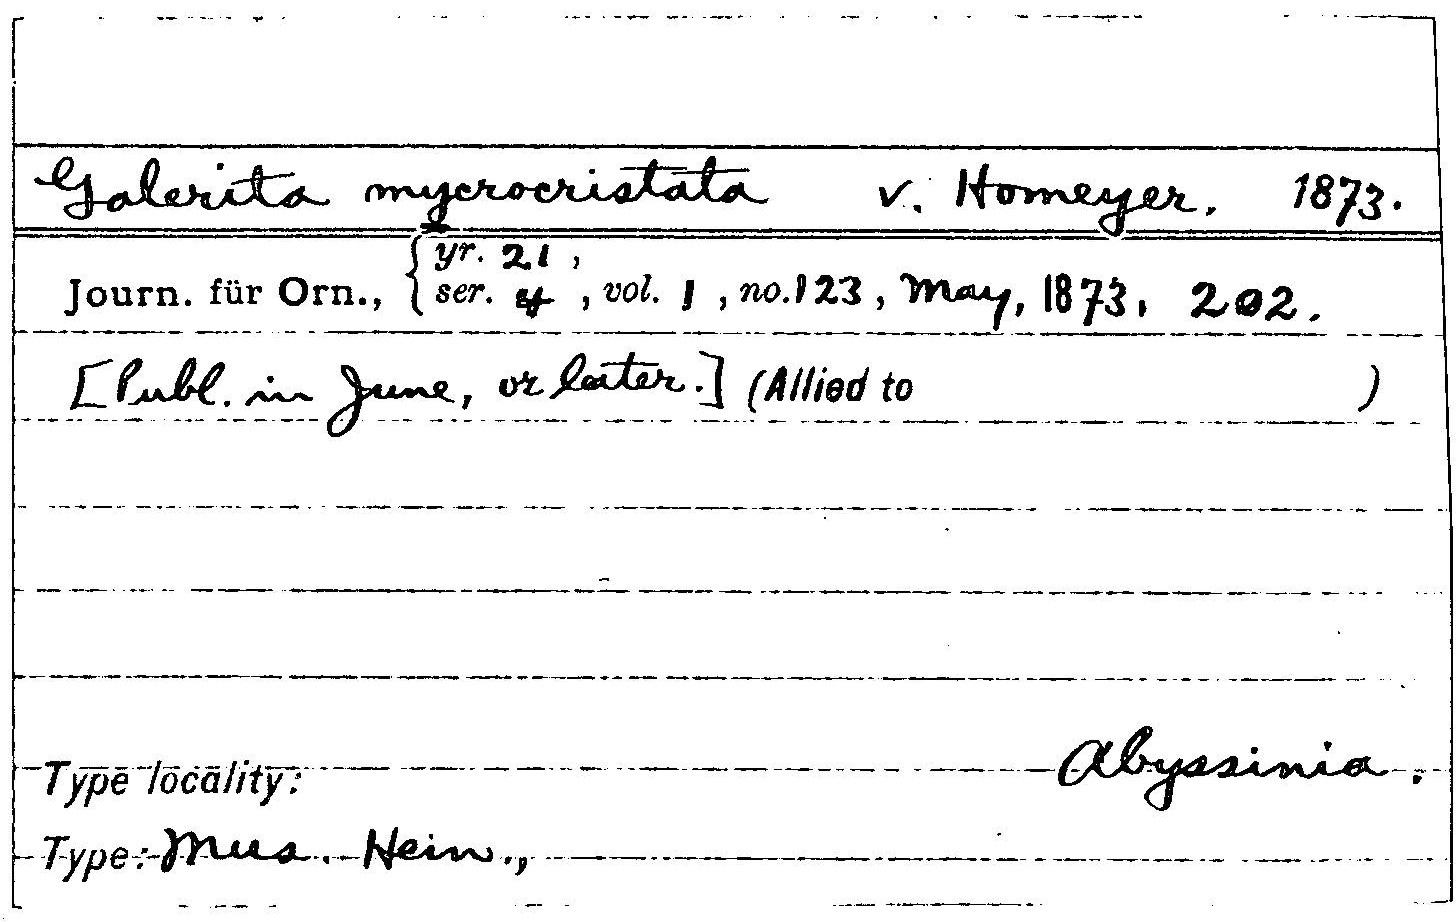 Galerita mycrocristata v. Homeyer. 1873.
yr. 21,
Journ. für Orn., { ser. 4, vol. 1, no. 123, May, 1873, 202.
[Publ. in June, or later.] (Allied to )
Type locality: Abyssinia.
Type: Mus. Hein.,